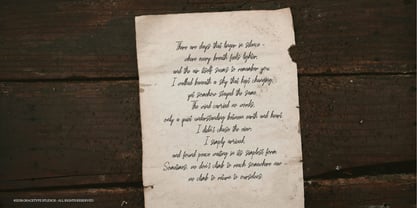 There are days that linger in silence -
where every breath feels lighter,
and the air itself seems to remember you.
I walked beneath a sky that kept changing,
yet somehow stayed the same.
The wind carried no words,
only a quiet understanding between earth and heart.
I didn't chase the view,
I simply arrived,
and found peace waiting in its simplest form.
Sometimes, we don't climb to reach somewhere new -
we climb to return to ourselves.
GRACETYPE STUDIO - ALL RIGHTS RESERVED